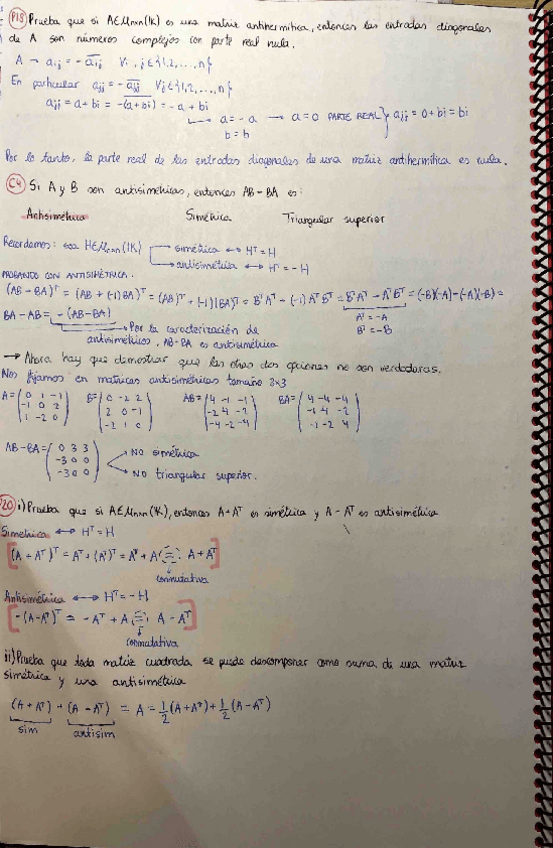 P18 Prueba que si A∈Mnxn(IK) es una matriz antihermítica, entonces las entradas diagonales
de A son números complejos con parte real nula.
A → aij = -āji ∀i, j∈{1,2,...,n}
En particular ajj = -ājj ∀j∈{1,2,...,n}
ajj = a+bi = -(a+bi) = -a+bi
a = -a → a=0 PARTE REAL } ajj = 0+bi = bi
b = b
Por lo tanto, la parte real de las entradas diagonales de una matriz antihermítica es nula.
C4 Si A y B son antisimétricas, entonces AB-BA es:
Antisimétrica Simétrica Triangular superior
Recordemos: sea H∈Mnxn(IK) simétrica ↔ Hᵀ=H
antisimétrica ↔ Hᵀ=-H
PROBANDO CON ANTISIMÉTRICA.
(AB-BA)ᵀ = (AB+(-1)BA)ᵀ = (AB)ᵀ+(-1)(BA)ᵀ = BᵀAᵀ+(-1)AᵀBᵀ = BᵀAᵀ-AᵀBᵀ = (-B)(-A)-(-A)(-B) =
BA-AB = -(AB-BA) Aᵀ=-A
Bᵀ=-B
Por la caracterización de
antisimétricas, AB-BA es antisimétrica
→ Ahora hay que demostrar que las otras dos opciones no son verdaderas.
Nos fijamos en matrices antisimétricas tamaño 3x3
A= B= AB= BA=
0 1 -1 0 -2 2 4 -1 -1 4 -4 -4
-1 0 2 2 0 -1 -2 4 -2 -1 4 -2
1 -2 0 -2 1 0 -4 -2 -4 -1 -2 4
AB-BA=
0 3 3 No simétrica
-3 0 0
-3 0 0 No triangular superior.
P20 i) Prueba que si A∈Mnxn(IK), entonces A+Aᵀ es simétrica y A-Aᵀ es antisimétrica
Simétrica ↔ Hᵀ=H
(A+Aᵀ)ᵀ = Aᵀ+(Aᵀ)ᵀ = Aᵀ+A = A+Aᵀ
conmutativa
Antisimétrica ↔ Hᵀ=-H
-(A-Aᵀ)ᵀ = -Aᵀ+A = A-Aᵀ
conmutativa
ii) Prueba que toda matriz cuadrada se puede descomponer como suma de una matriz
simétrica y una antisimétrica
(A+Aᵀ)+(A-Aᵀ) = A = 1/2(A+Aᵀ)+1/2(A-Aᵀ)
sim antisim